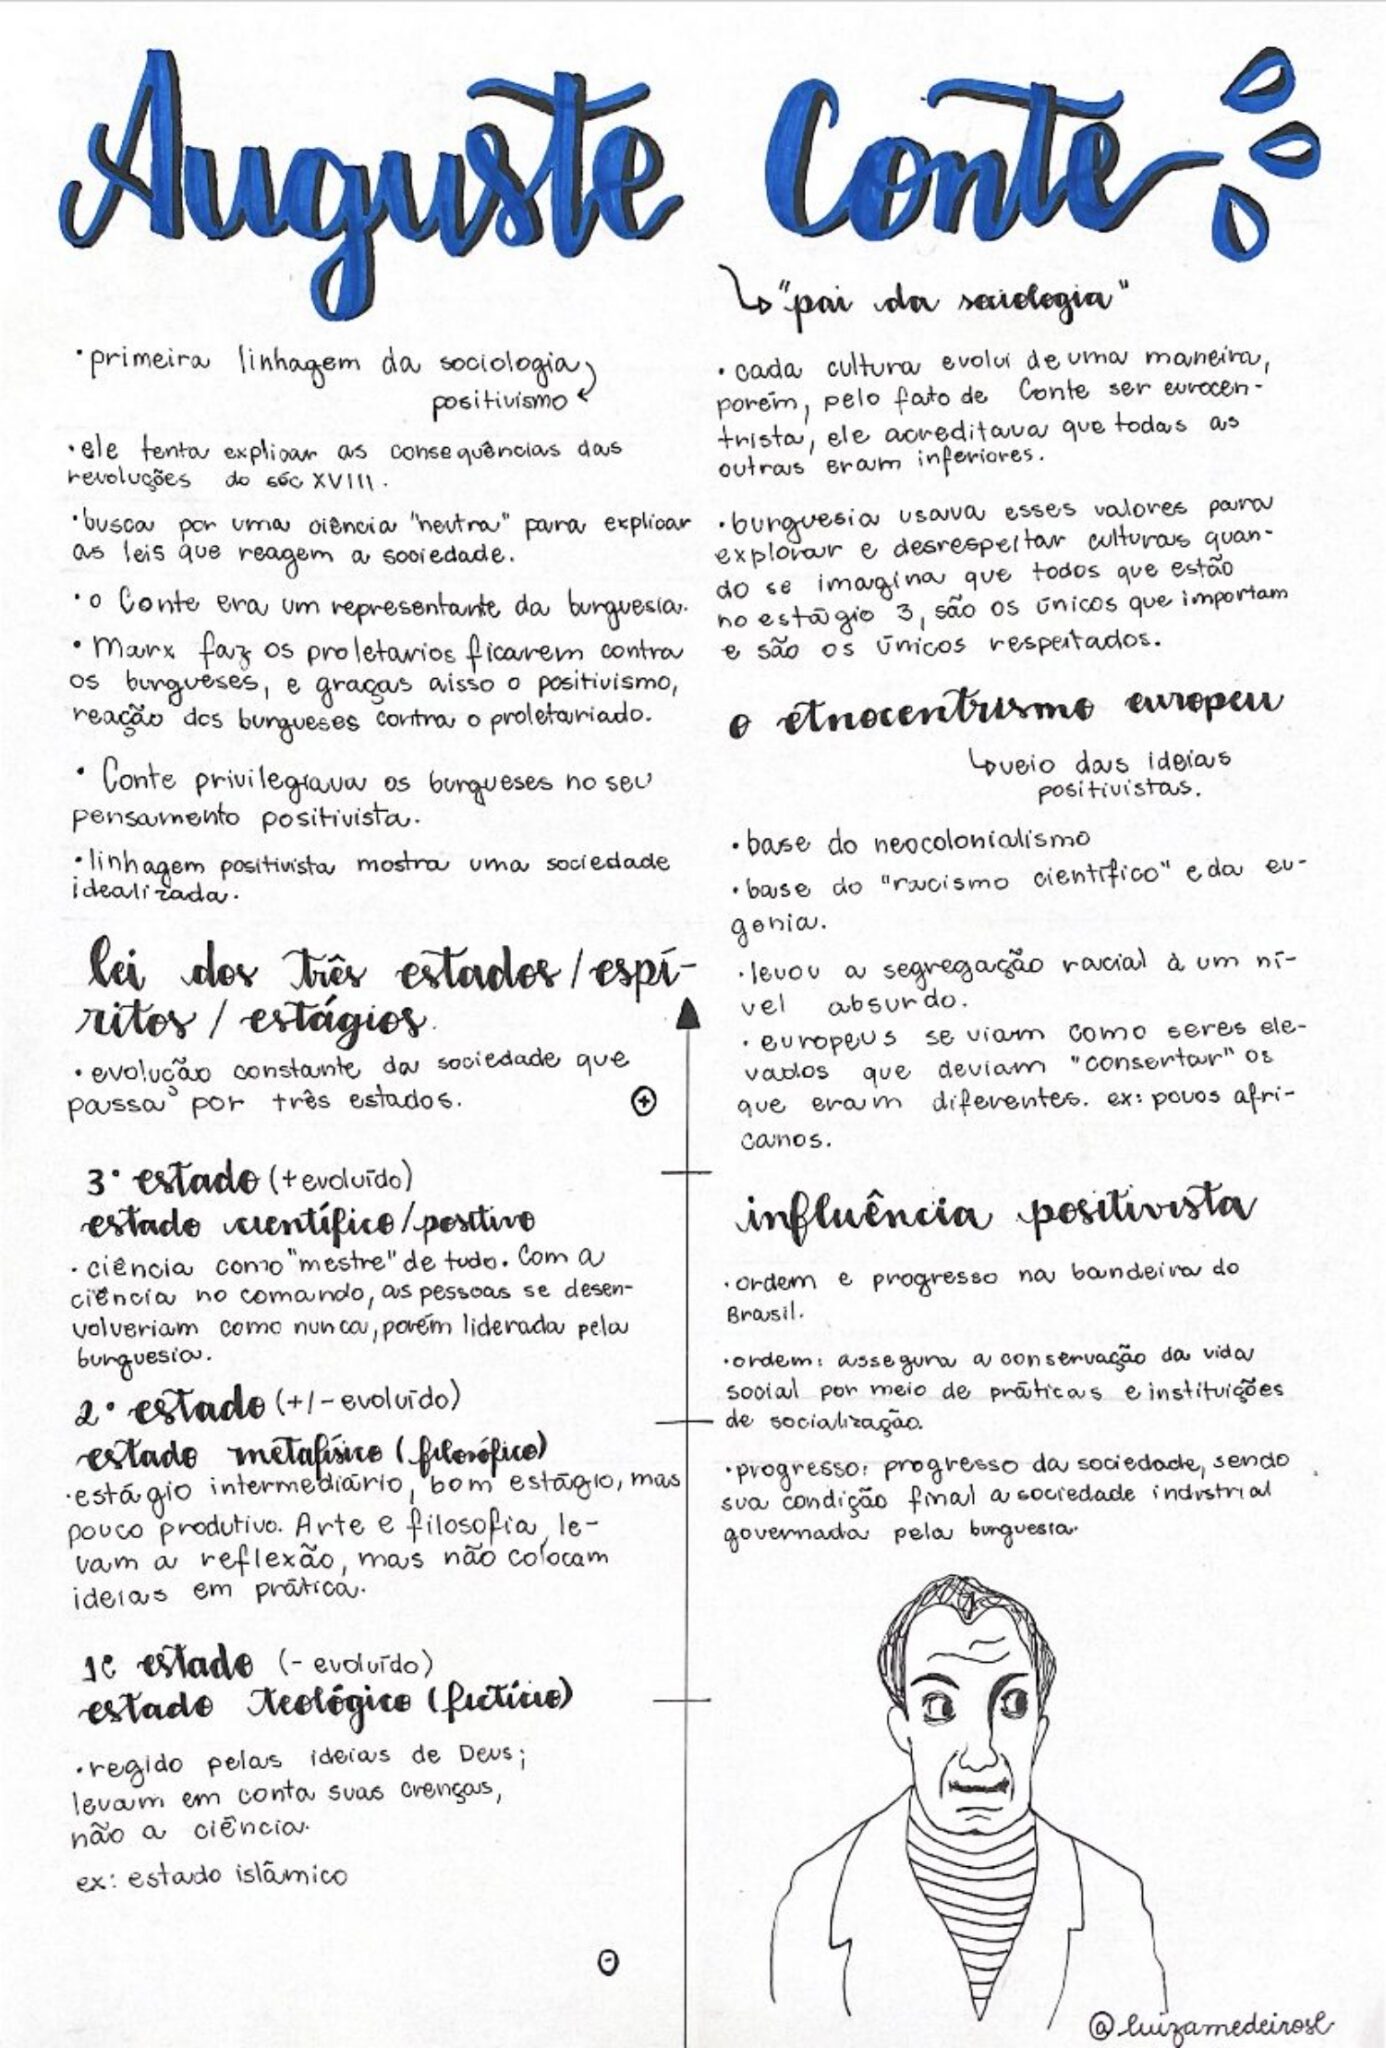 Auguste Conte
"pai da sociologia"
•primeira linhagem da sociologia
positivismo
•ele tenta explicar as consequências das
revoluções do séc XVIII.
•busca por uma ciência "neutra" para explicar
as leis que reagem a sociedade.
•o Conte era um representante da burguesia.
•Marx faz os proletarios ficarem contra
os burgueses, e graças aisso o positivismo,
reação dos burgueses contra o proletariado.
•Conte privilegiava os burgueses no seu
pensamento positivista.
•linhagem positivista mostra uma sociedade
idealizada.
lei dos três estados/espí-
ritos/estágios.
•evolução constante da sociedade que
passa por três estados.
3° estado (+evoluído)
estado científico/positivo
•ciência como "mestre" de tudo. Com a
ciência no comando, as pessoas se desen-
volveriam como nunca, porém liderada pela
burguesia.
2° estado (+/- evoluído)
estado metafísico (filosófico)
•estágio intermediário, bom estágio, mas
pouco produtivo. Arte e filosofia, le-
vam a reflexão, mas não colocam
ideias em prática.
1° estado (- evoluído)
estado teológico (fictício)
•regido pelas ideias de Deus;
levam em conta suas crenças,
não a ciência.
ex: estado islâmico
+
-
•cada cultura evolui de uma maneira,
porém, pelo fato de Conte ser eurocen-
trista, ele acreditava que todas as
outras eram inferiores.
•burguesia usava esses valores para
explorar e desrespeitar culturas quan-
do se imagina que todos que estão
no estágio 3, são os únicos que importam
e são os únicos respeitados.
o etnocentrismo europeu
veio das ideias
positivistas.
•base do neocolonialismo
•base do "racismo científico" e da eu-
genia.
•levou a segregação racial à um ní-
vel absurdo.
•europeus se viam como seres ele-
vados que deviam "consertar" os
que eram diferentes. ex: povos afri-
canos.
influência positivista
•ordem e progresso na bandeira do
Brasil.
•ordem: assegura a conservação da vida
social por meio de práticas e instituições
de socialização.
•progresso: progresso da sociedade, sendo
sua condição final a sociedade industrial
governada pela burguesia.
@luizamedeirosl